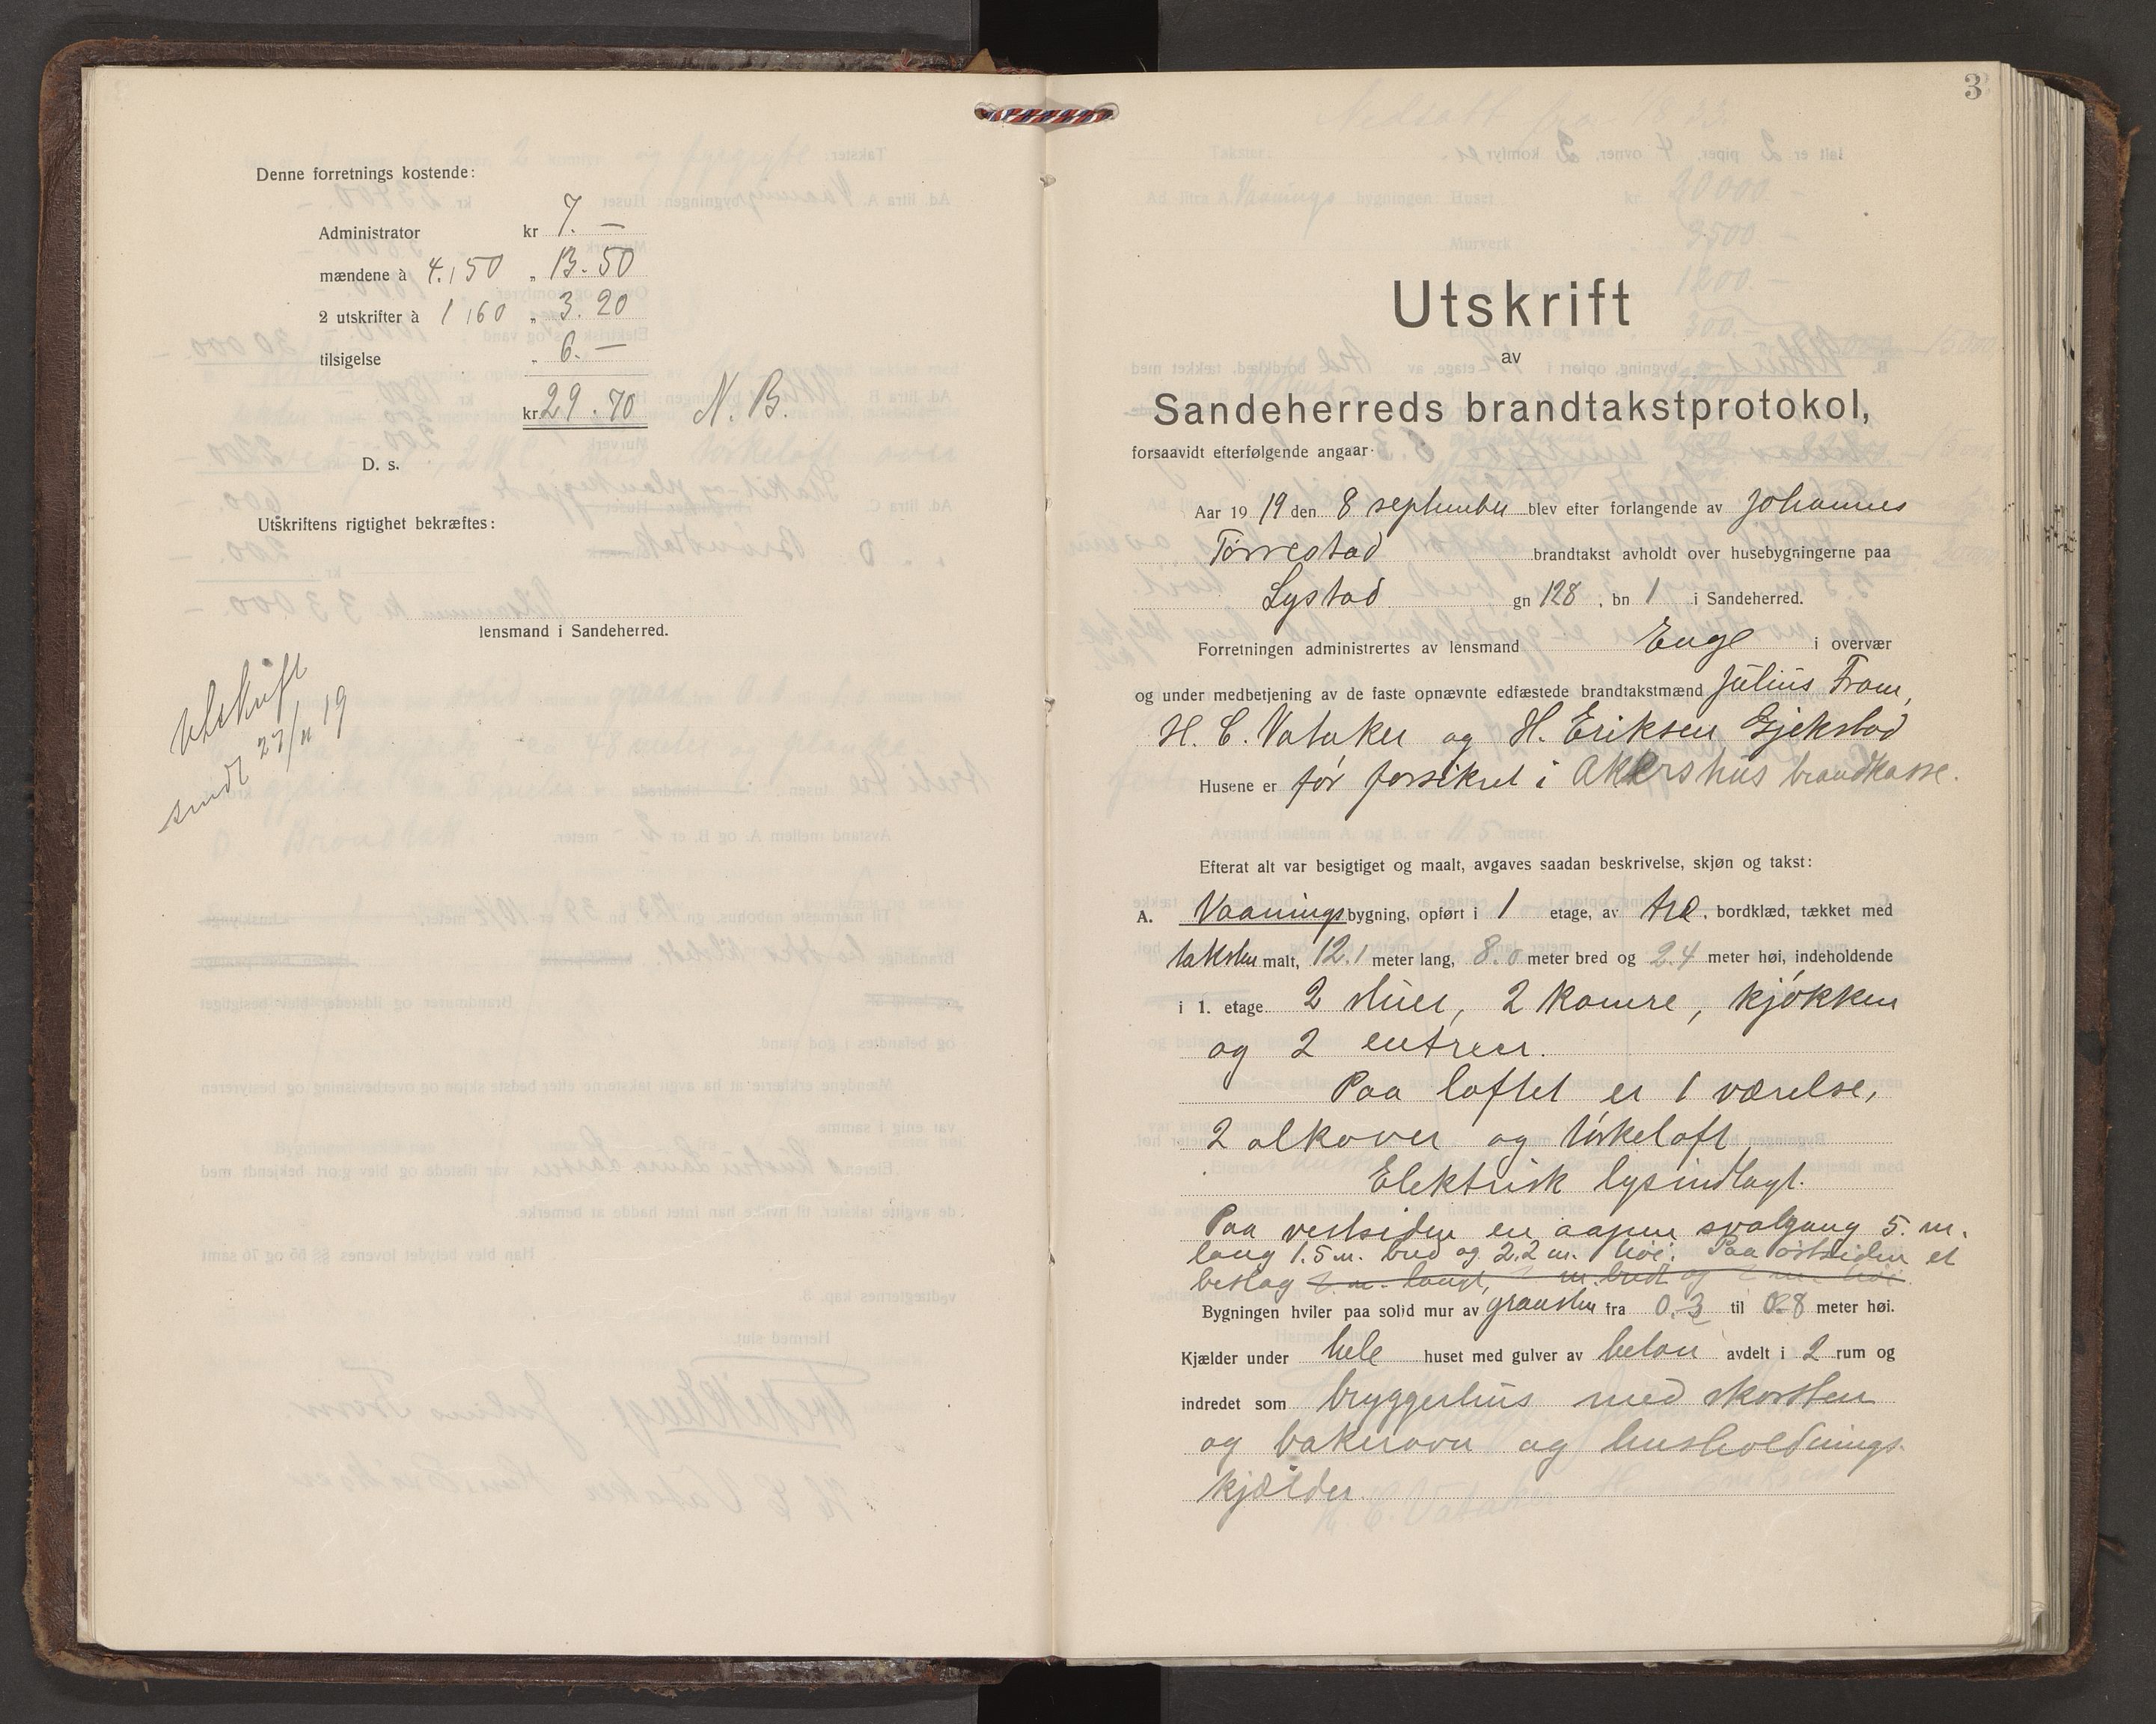 Denne forretnings kostende:
Administrator kr 7. —
mændene à 4,50 „ 13.50
2 utskrifter à 1,60 „ 3.20
tilsigelse „ 6. —
kr 29.70 N. B.
D. s.
Utskriftens rigtighet bekræftes:
lensmand i Sandeherred.
Utskrift
sendt 27/11 19
3
Utskrift
av
Sandeherreds brandtakstprotokol,
forsaavidt efterfølgende angaar.
Aar 1919 den 8 september blev efter forlangende av Johannes
Tørrestad brandtakst avholdt over husebygningerne paa
Lystad gn 128, bn 1 i Sandeherred.
Forretningen administrertes av lensmand Enge i overvær
og under medbetjening av de faste opnævnte edfæstede brandtakstmænd Julius Fram,
H. C. Vataker og H. Eriksen Gjekstad
Husene er før forsikret i Akershus brandkasse.
Efterat alt var besigtiget og maalt, avgaves saadan beskrivelse, skjøn og takst:
A. Vaaningsbygning, opført i 1 etage, av træ, bordklæd, tækket med
taksten malt, 12.1 meter lang, 8.0 meter bred og 2.4 meter høi, indeholdende
i 1. etage 2 stuer, 2 kamre, kjøkken
og 2 entreer.
Paa loftet er 1 værelse,
2 alkover og tørkeloft
Elektrisk lys indlagt.
Paa vestsiden en aapen svalgang 5. m.
lang 1.5 m. bred og 2.2 m. høi. Paa østsiden et
beslag m. langt, m. bredt og høi.
Bygningen hviler paa solid mur av graasten fra 0.3 til 0.8 meter høi.
Kjælder under hele huset med gulver av beton avdelt i 2 rum og
indredet som bryggerhus med skorsten
og bakerovn og husholdnings-
kjælder.